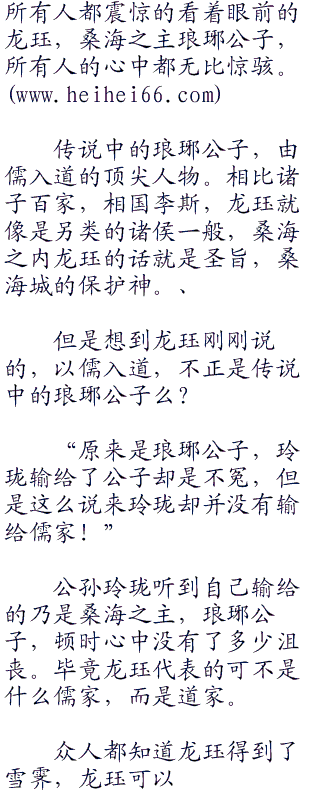 所有人都震惊的看着眼前的
龙珏，桑海之主琅琊公子，
所有人的心中都无比惊骇。
(www.heihei66.com)
传说中的琅琊公子，由
儒入道的顶尖人物。相比诸
子百家，相国李斯，龙珏就
像是另类的诸侯一般，桑海
之内龙珏的话就是圣旨，桑
海城的保护神。、
但是想到龙珏刚刚说
的，以儒入道，不正是传说
中的琅琊公子么？
“原来是琅琊公子，玲
珑输给了公子却是不冤，但
是这么说来玲珑却并没有输
给儒家！”
公孙玲珑听到自己输给
的乃是桑海之主，琅琊公
子，顿时心中没有了多少沮
丧。毕竟龙珏代表的可不是
什么儒家，而是道家。
众人都知道龙珏得到了
雪霁，龙珏可以